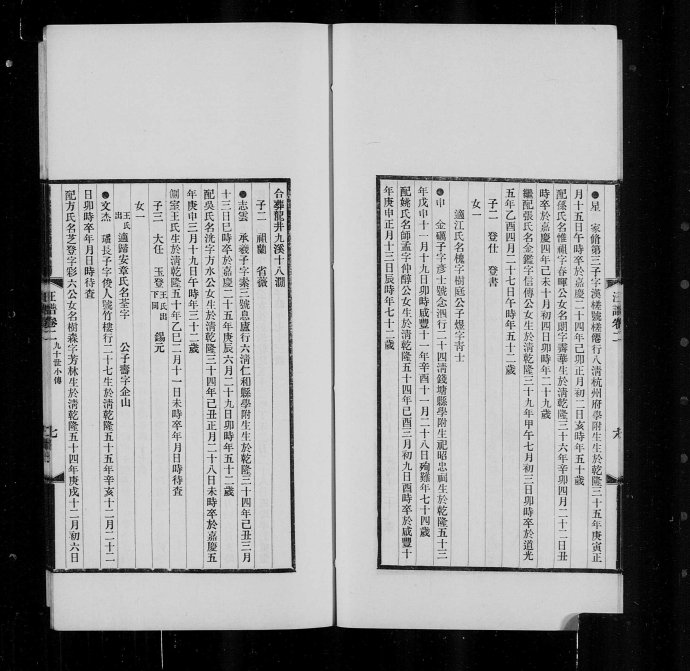 汪譜卷二
●星 家脩第三子字漢槎號槎僊行八清杭州府學附生生於乾隆三十五年庚寅正
月十五日午時卒於嘉慶二十四年己卯正月初二日亥時年五十歲
配孫氏名惟祖字春暉公女名朗字壽華生於清乾隆三十六年辛卯四月二十二日丑
時卒於嘉慶四年己未十月初四日卯時年二十九歲
繼配張氏名金鑑字信傳公女生於清乾隆三十九年甲午七月初三日卯時卒於道光
五年乙酉四月二十七日午時年五十二歲
子二 登仕 登書
女一
適江氏名槐字樹庭公子煜字青士
●申 金礪子字彥士號念泗行二十四清錢塘縣學附生祀昭忠祠生於乾隆五十三
年戊申十一月十九日卯時咸豐十一年辛酉十一月二十八日殉難年七十四歲
配姚氏名師孟字仲醇公女生於清乾隆五十四年己酉三月初九日酉時卒於咸豐十
年庚申正月十三日辰時年七十二歲
合葬龍井九溪十八澗
子二 祖蘭 省薇
●志雲 承羲子字素三號息廬行六清仁和縣學附生生於乾隆三十四年己丑三月
十三日巳時卒於嘉慶二十五年庚辰六月二十九日卯時年五十二歲
配吳氏名洸字方水公女生於清乾隆三十四年己丑正月二十八日未時卒於嘉慶五
年庚申三月十九日午時年三十二歲
側室王氏生於清乾隆五十年乙巳二月十一日未時卒年月日時待查
子三 大任 玉登 王氏出下同 錫元
女一
王氏出 適歸安章氏名荃字 公子壽字企山
●文杰 璠長子字俊人號竹樓行二十七生於清乾隆五十五年辛亥十二月二十二
日卯時卒年月日時待查
配方氏名芝登字彩六公女名樹森字芳林生於清乾隆五十四年庚戌十二月初六日
汪譜卷二 九十世小傳 七